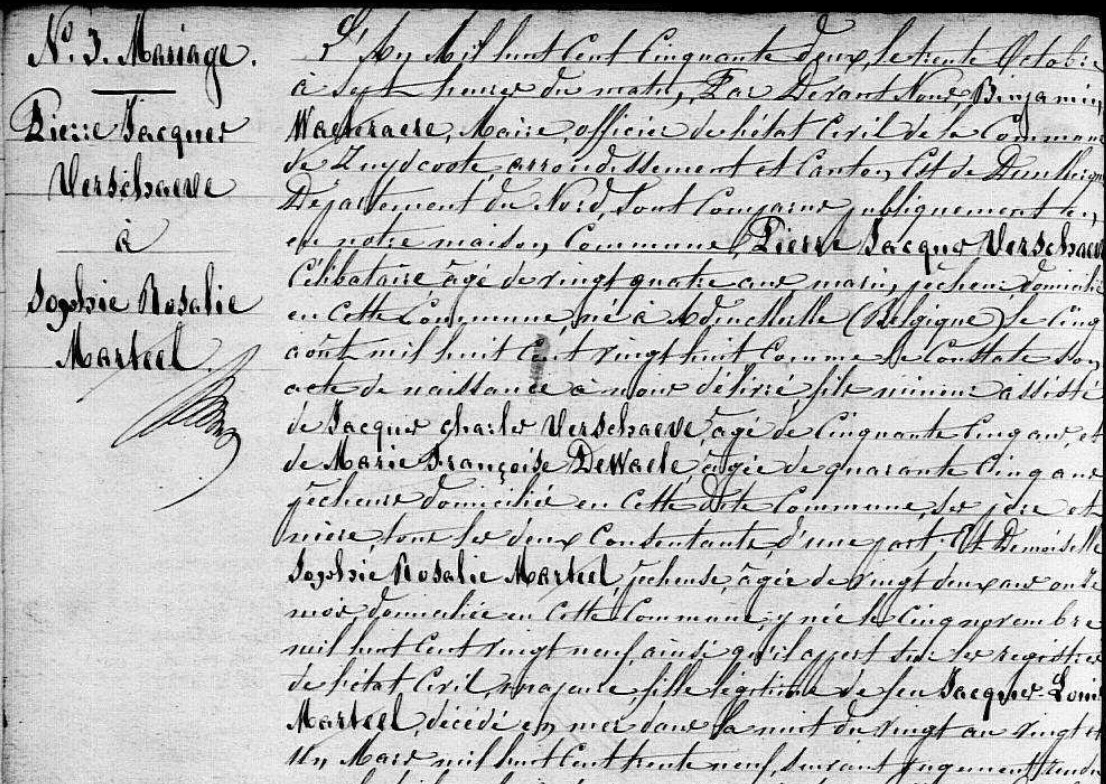 N°. 3. Mariage.
Pierre Jacques
Verschaeve
à
Sophie Rosalie
Marteel.
L'An Mil huit Cent Cinquante deux, le trente Octobre
à sept heures du matin, Par Devant Nous, Binjamin
Maire, officier de l'état Civil de la Commune
de Zuydcoote arrondissement et Canton Est de Dunkerque
Département du Nord, Sont Comparus publiquement en
en notre maison Commune, Pierre Jacques Verschaeve
Célibataire âgé de vingt quatre ans marin, pêcheur domicilié
en Cette Commune, né à Adinckerke (Belgique) le Cinq
août mil huit Cent vingt huit Comme le Constate son
acte de naissance à nous délivré, fils mineur assisté
de Jacques Charles Verschaeve, âgé de Cinquante Cinq ans, et
de Marie Françoise DeWaele, âgée de quarante Cinq ans
pêcheurs domiciliés en Cette dite Commune, ses père et
mère, tous les deux Consentants, d'une part; Et Demoiselle
Sophie Rosalie Marteel, pêcheuse, âgée de vingt deux ans onze
mois, domiciliée en Cette Commune, y née le Cinq novembre
mil huit Cent vingt neuf, ainsi qu'il appert sur les registres
de l'état Civil, majeure, fille légitime de feu Jacques Louis
Marteel, décédé en mer dans la nuit du vingt au vingt et
Un Mars mil huit Cent trente neuf, suivant jugement rendu